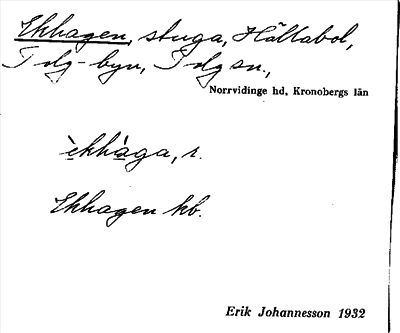 Ekhagen, stuga, Hällabol,
Tolg-byn, Tolg sn.,
Norrvidinge hd, Kronobergs län
èkhàga, r.
Ekhagen kb.
Erik Johannesson 1932